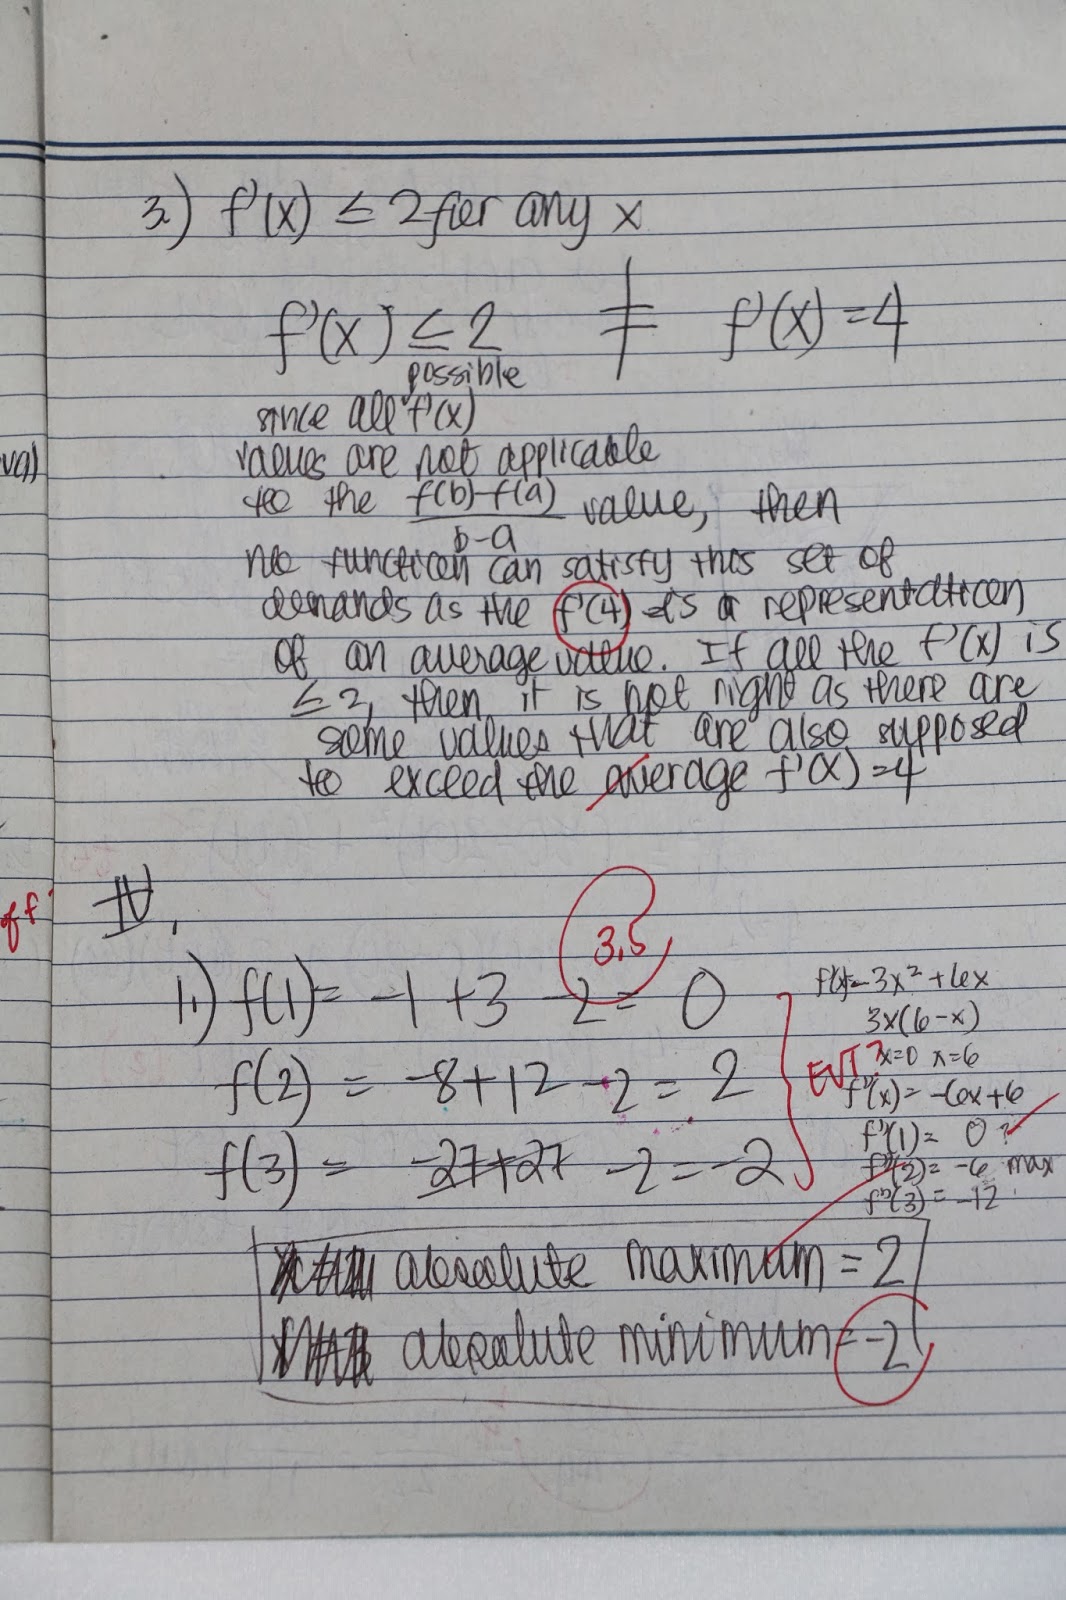 3.) f'(x) ≤ 2 for any x
f'(x) ≤ 2 ≠ f'(x) = 4
possible
since all f'(x)
values are not applicable
va)
to the f(b)-f(a) value, then
b-a
no function can satisfy this set of
demands as the f'(4) is a representation
of an average value. If all the f'(x) is
≤ 2, then it is not right as there are
some values that are also supposed
to exceed the average f'(x) = 4
of f'
IV.
3.5
1.) f(1) = -1 + 3 - 2 = 0
f(2) = -8 + 12 - 2 = 2
f(3) = -27 + 27 - 2 = -2
f'(x) = -3x² + 6x
3x(6-x)
EVT? x=0 x=6
f''(x) = -6x+6
f''(1) = 0 ?
f''(2) = -6 max
f''(3) = -12
absolute maximum = 2
absolute minimum = -2